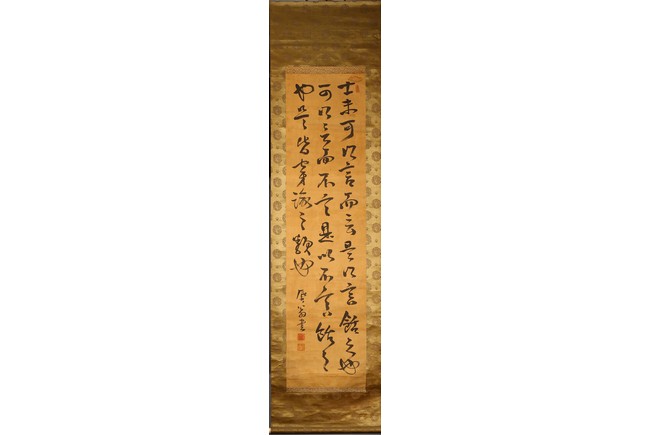 士未可以言而言是以言餂之也
可以言而不言是以不言餂之
也是皆穿踰之類也